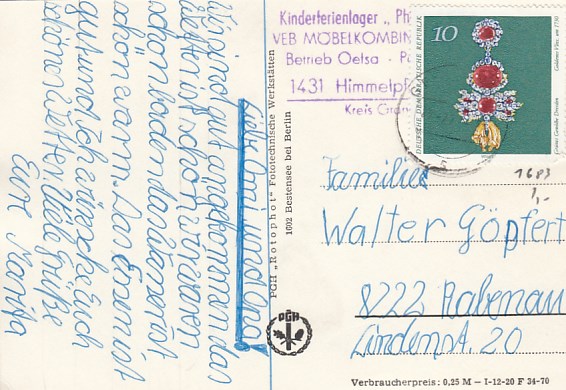 Liebe Omi und Opa!
Wir sind gut angekommen das
Wetter ist schön wir waren
schon baden das Wasser ist
schön warm. Das Essen ist
gut und ich wünsche Euch
schönes Wetter. Viele Grüße
Eure Marita
PGH „Rotophot“ Fototechnische Werkstätten
1002 Bestensee bei Berlin
PGH
Kinderferienlager „
VEB MÖBELKOMBIN
Betrieb Oelsa -
1431 Himmelpf
Kreis
10
DEUTSCHE DEMOKRATISCHE REPUBLIK
Goldenes Vlies, um 1750
Grünes Gewölbe Dresden
1683
1,-
Familie
Walter Göpfert
8222 Rabenau
Lindenst. 20
Verbraucherpreis: 0,25 M – I-12-20 F 34-70